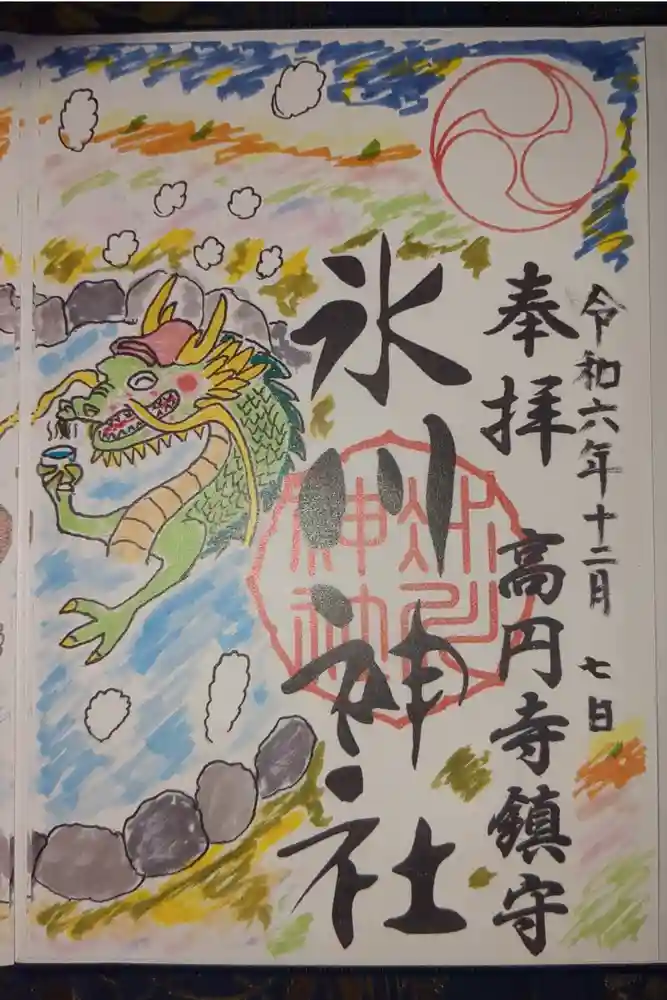 令和六年十二月 七日
奉拝 高円寺鎮守
氷川神社
氷川
神社